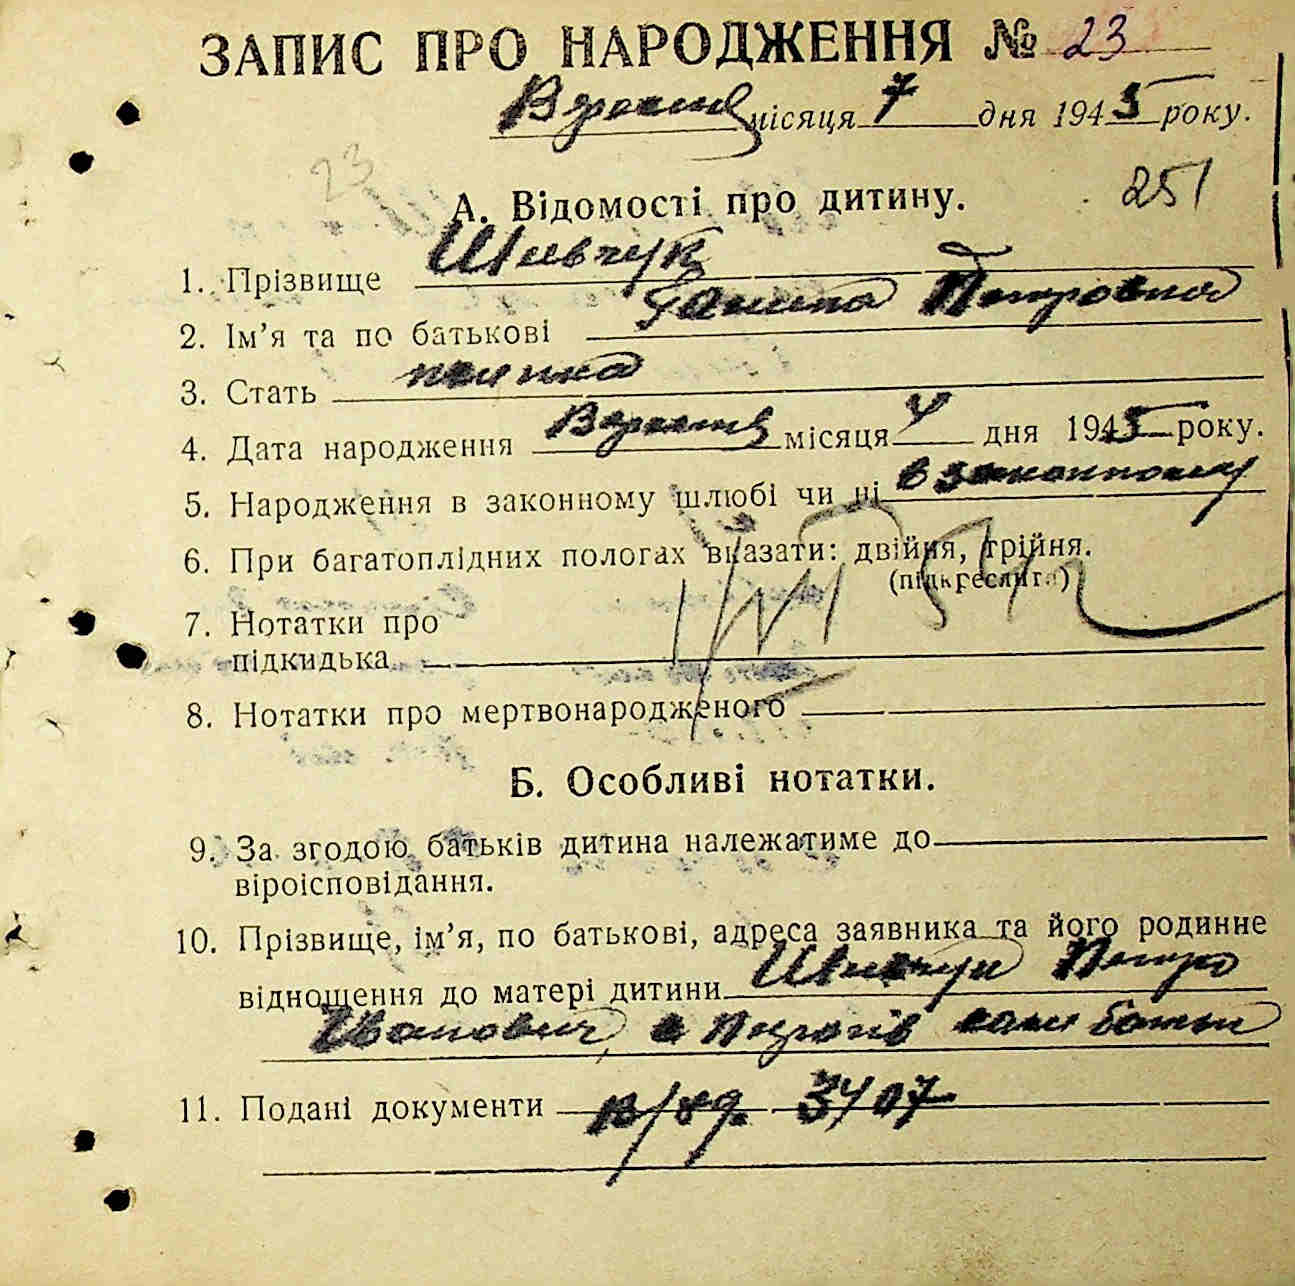 ЗАПИС ПРО НАРОДЖЕННЯ № 23
Вересня місяця 7 дня 1945 року.
23
251
А. Відомості про дитину.
1. Прізвище Шевчук
2. Ім’я та по батькові Ганна Петровна
3. Стать жінка
4. Дата народження Вересня місяця 4 дня 1945 року.
5. Народження в законному шлюбі чи ні в законному
6. При багатоплідних пологах вказати: двійня, трійня.
(підкреслити)
7. Нотатки про
підкидька
8. Нотатки про мертвонародженого
Б. Особливі нотатки.
9. За згодою батьків дитина належатиме до
віроісповідання.
10. Прізвище, ім’я, по батькові, адреса заявника та його родинне
відношення до матері дитини Шевчук Петро
Іванович с Пирогів сам батько
11. Подані документи 3407